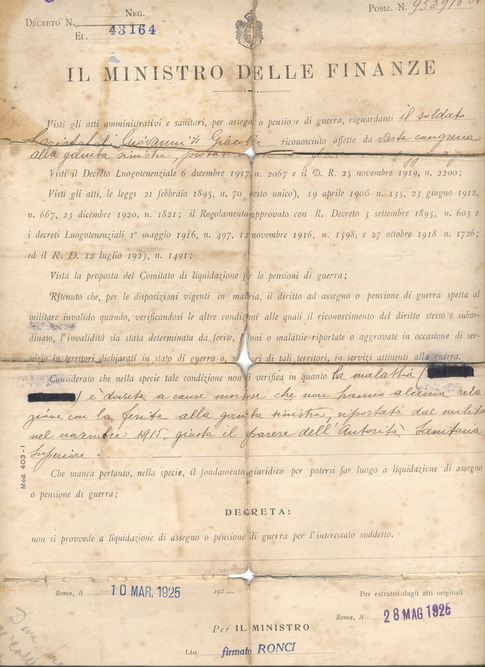 Neg.
Posiz. N.
Decreto N.
El. 43164
IL MINISTRO DELLE FINANZE
Visti gli atti amministrativi e sanitari, per assegno o pensione di guerra, riguardanti il soldato
Giovanni di riconosciuto affetto da vasta cangrena
alla gamba sinistra,
Visti il Decreto Luogotenenziale 6 dicembre 1917, n. 2067 e il D. R. 25 novembre 1919, n. 2200;
Visti gli atti, le leggi 21 febbraio 1895, n. 70 (testo unico), 19 aprile 1906 n. 135, 23 giugno 1912,
n. 667, 23 dicembre 1920, n. 1821; il Regolamento approvato con R. Decreto 5 settembre 1895, n. 603 e
i decreti Luogotenenziali 1° maggio 1916, n. 497, 12 novembre 1916, n. 1598, e 27 ottobre 1918 n. 1726;
ed il R. D. 12 luglio 1923, n. 1491;
Vista la proposta del Comitato di liquidazione per le pensioni di guerra;
Ritenuto che, per le disposizioni vigenti in materia, il diritto ad assegno o pensione di guerra spetta al
militare invalido quando, verificandosi le altre condizioni alle quali il riconoscimento del diritto stesso è subor-
dinato, l'invalidità sia stata determinata da ferite, lesioni o malattie riportate o aggravate in occasione di ser-
vizio in territori dichiarati in stato di guerra o, fuori di tali territori, in servizi attinenti alla guerra.
Considerato che nella specie tale condizione non si verifica in quanto la malattia
è dovuta a cause morbose che non hanno alcuna rela
zione con la ferita alla gamba sinistra, riportata dal milite
nel novembre 1915, giusta il parere dell'Autorità Sanitaria
Superiore.
Che manca pertanto, nella specie, il fondamento giuridico per potersi far luogo a liquidazione di assegno
o pensione di guerra;
DECRETA:
non si provvede a liquidazione di assegno o pensione di guerra per l'interessato suddetto.
Mod. 403-I
Roma, li 10 MAR. 1925 192
Per estratto dagli atti originali
Roma, li 28 MAG 1925
Per IL MINISTRO
f.to firmato RONCI